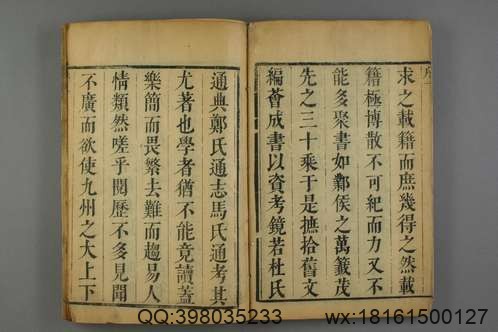 序
求之載籍而庶幾得之然載
籍極博散不可紀而力又不
能多聚書如鄴侯之萬籤茂
先之三十乘于是摭拾舊文
編薈成書以資考鏡若杜氏
通典鄭氏通志馬氏通考其
尤著也學者猶不能竟讀蓋
樂簡而畏繁去難而趨易人
情類然嗟乎閱歷不多見聞
不廣而欲使九州之大上下
QQ:398035233
wx:18161500127